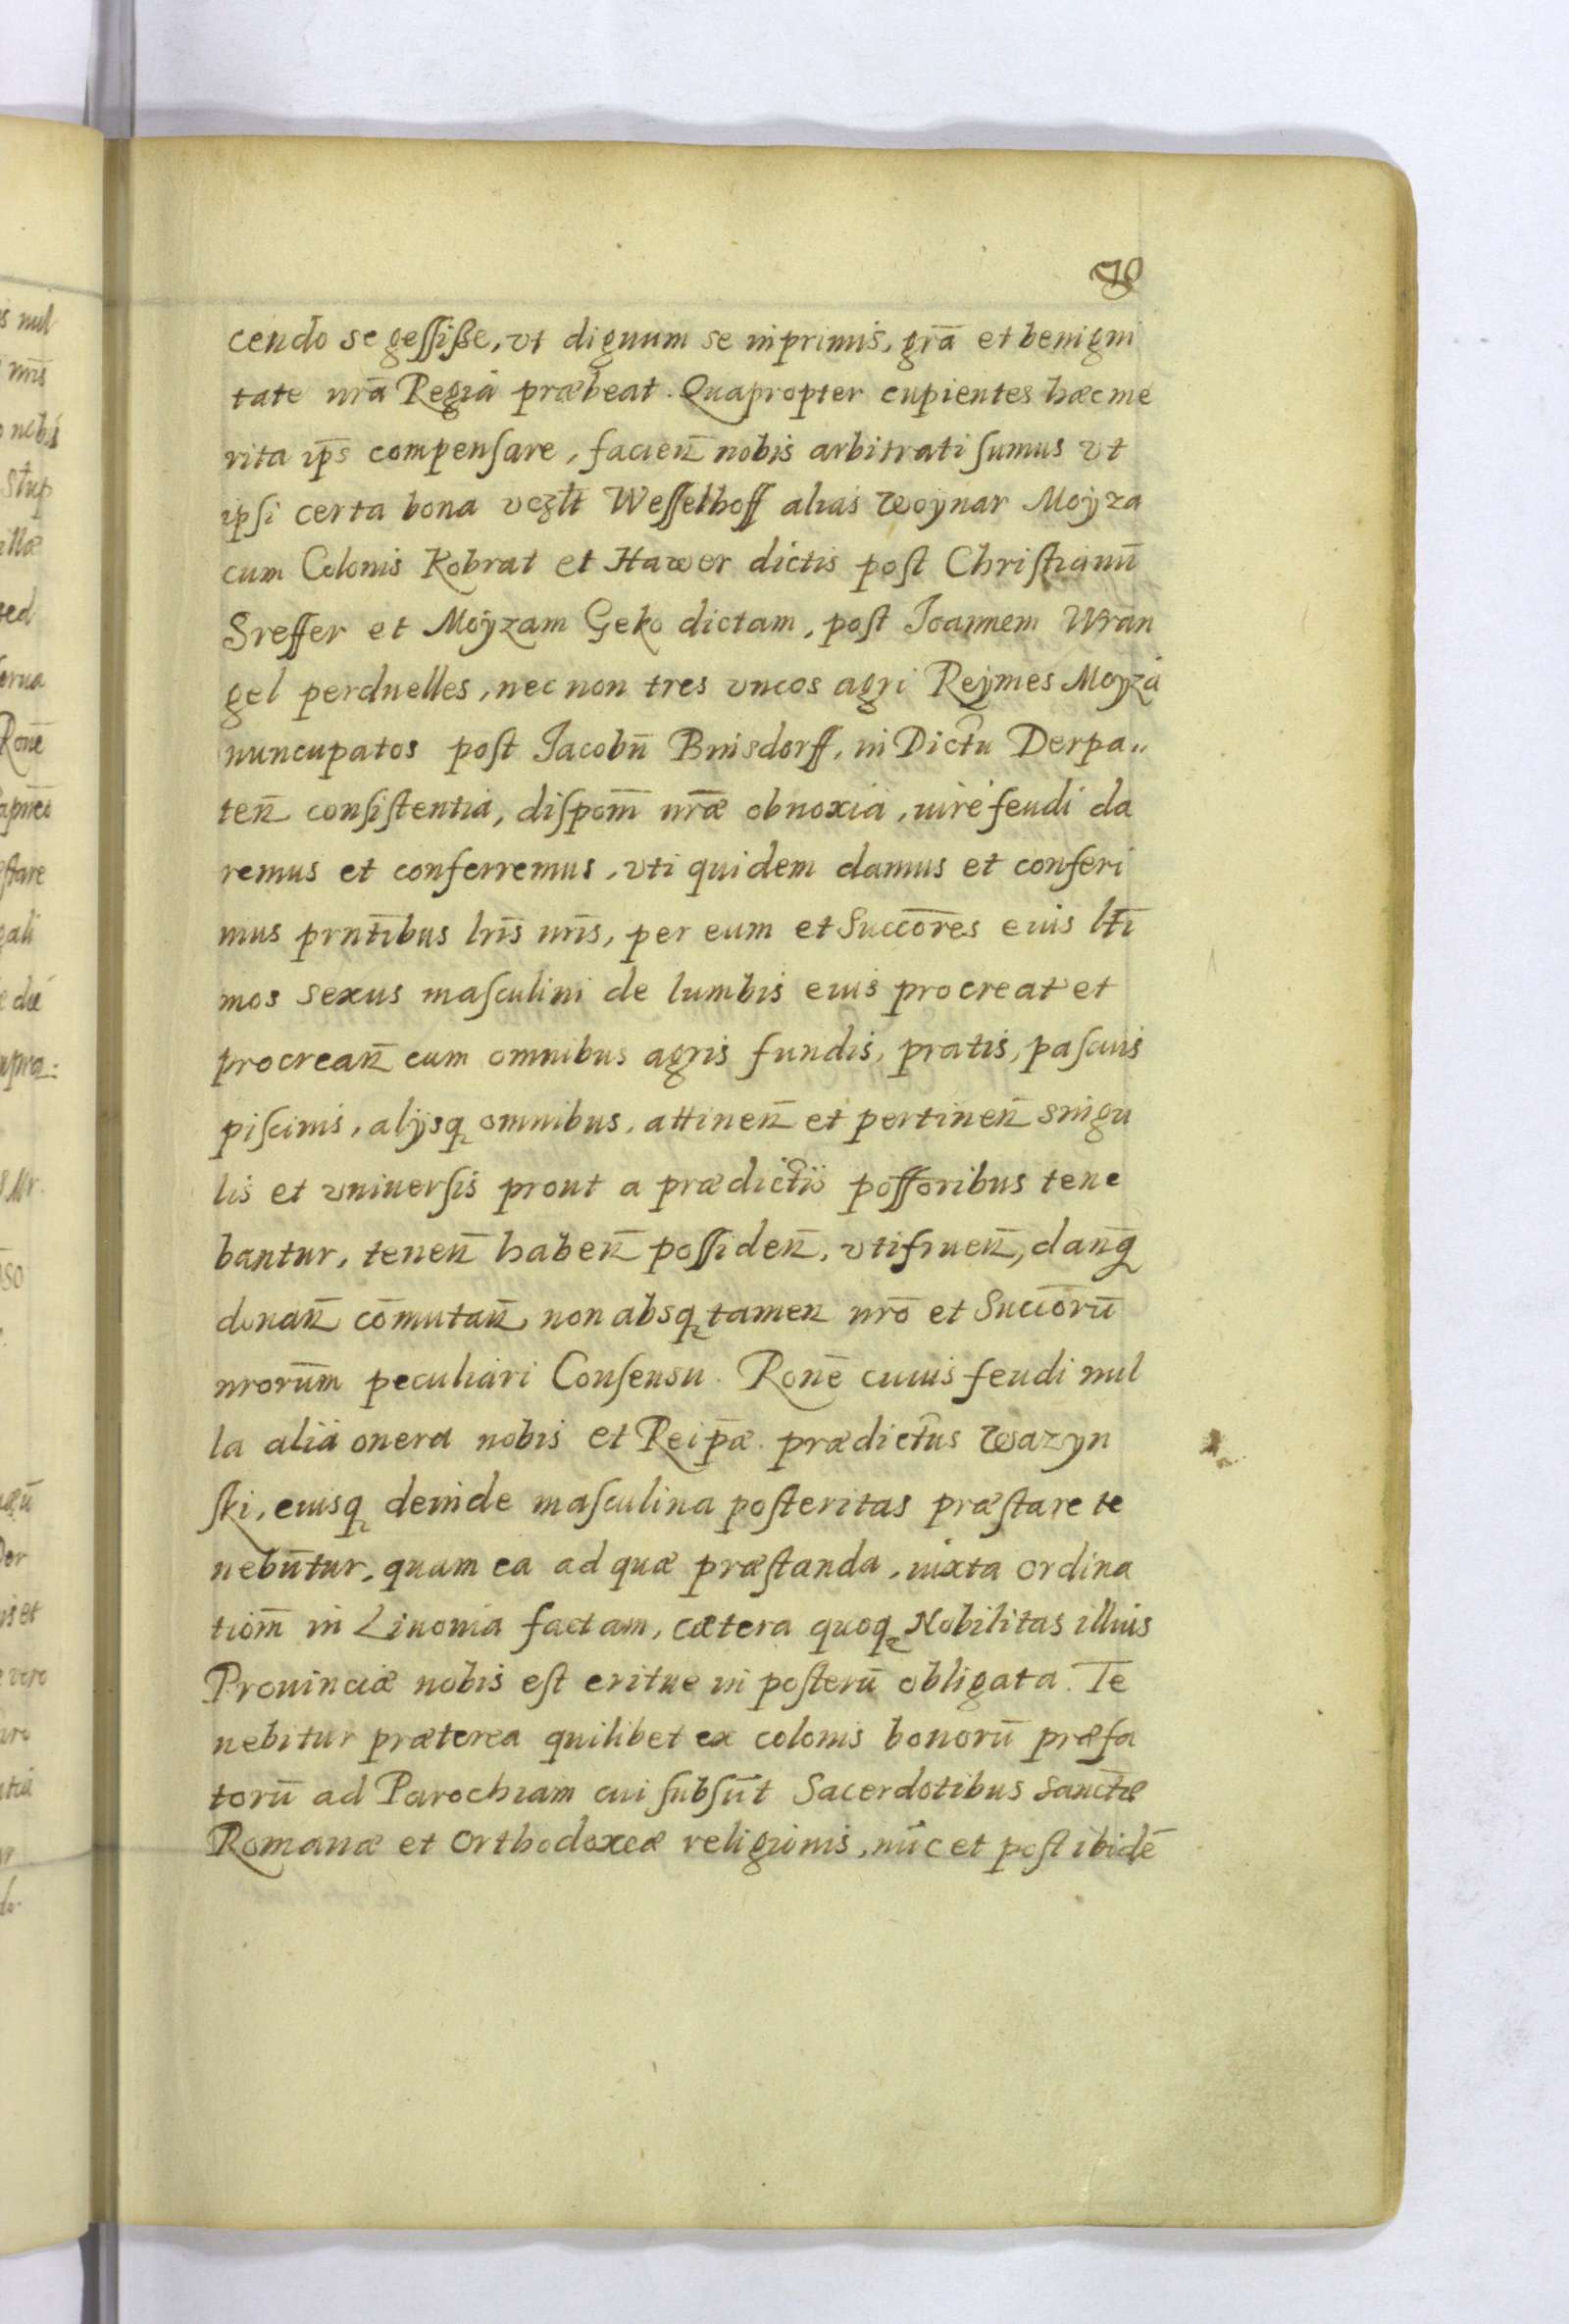 cendo se gessisse, vt dignum se inprimis, grã et benigni
tate nrã Regia præbeat. Quapropter cupientes hæc me
rita ip̃s compensare, facien̄ nobis arbitrati sumus vt
ipsi certa bona vcz̃lt Wesselhoff alias Woynar Moÿza
cum Colonis Kobrat et Hawer dictis post Christianū
Sreffer et Moÿzam Geko dictam, post Joannem Wran
gel perduelles, nec non tres vncos agri Reÿmes Moyza
nuncupatos post Jacobū Brnisdorff, in Dictũ Derpa„
ten̄ consistentia, dispom̄ nr̄æ obnoxia, iure feudi da
remus et conferremus, vti quidem damus et conferi
mus prnt̄ibus lrīs nrīs, per eum et Succōres eius lt̄i
mos sexus masculini de lumbis eius procreat et
procrean̄ cum omnibus agris fundis, pratis, pascuis
piscinis, alÿsq omnibus, attinen̄ et pertinen̄ singu
lis et vniuersis prout a prædictis possoribus tene
bantur, tenen̄ haben̄ possiden̄, vtifruen̄, danq̄
donan̄ com̄utan̄ non absq tamen nrō et Succorū
nrorūm peculiari Consensu. Ronē cuius feudi nul
la alia onera nobis et Reip̄æ prædictus Wazyn
ski, eiusq deinde masculina posteritas præstare te
nebūtur, quam ea ad quæ præstanda, iuxta ordina
tiom̄ in Liuonia factam, cætera quoq Nobilitas illius
Prouinciæ nobis est eritue in posterū obligata. Te
nebitur præterea quilibet ex colonis bonorū præfa
torū ad Parochiam cui subsūt Sacerdotibus sanctæ
Romanæ et Orthodoxeæ religionis, nūc et post ibidē